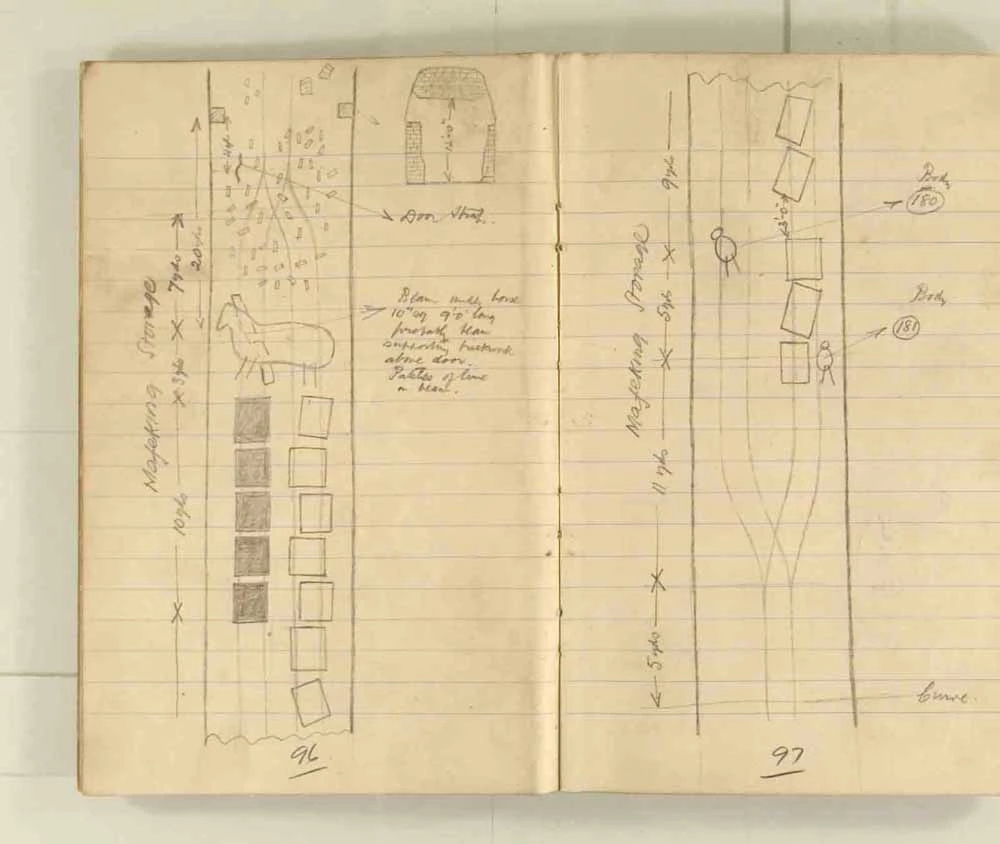 Mafeking Storage
10 yds
3 yds
7 yds
20 yds
12'0"
Door Strap.
Beam under horse
10" sq 9'0" long
probably beam
supporting brickwork
above door.
Patches of lime
on beam.
96
Mafeking Storage
9 yds
5 yds
11 yds
5 yds
Body
180
Body
181
Curve.
97